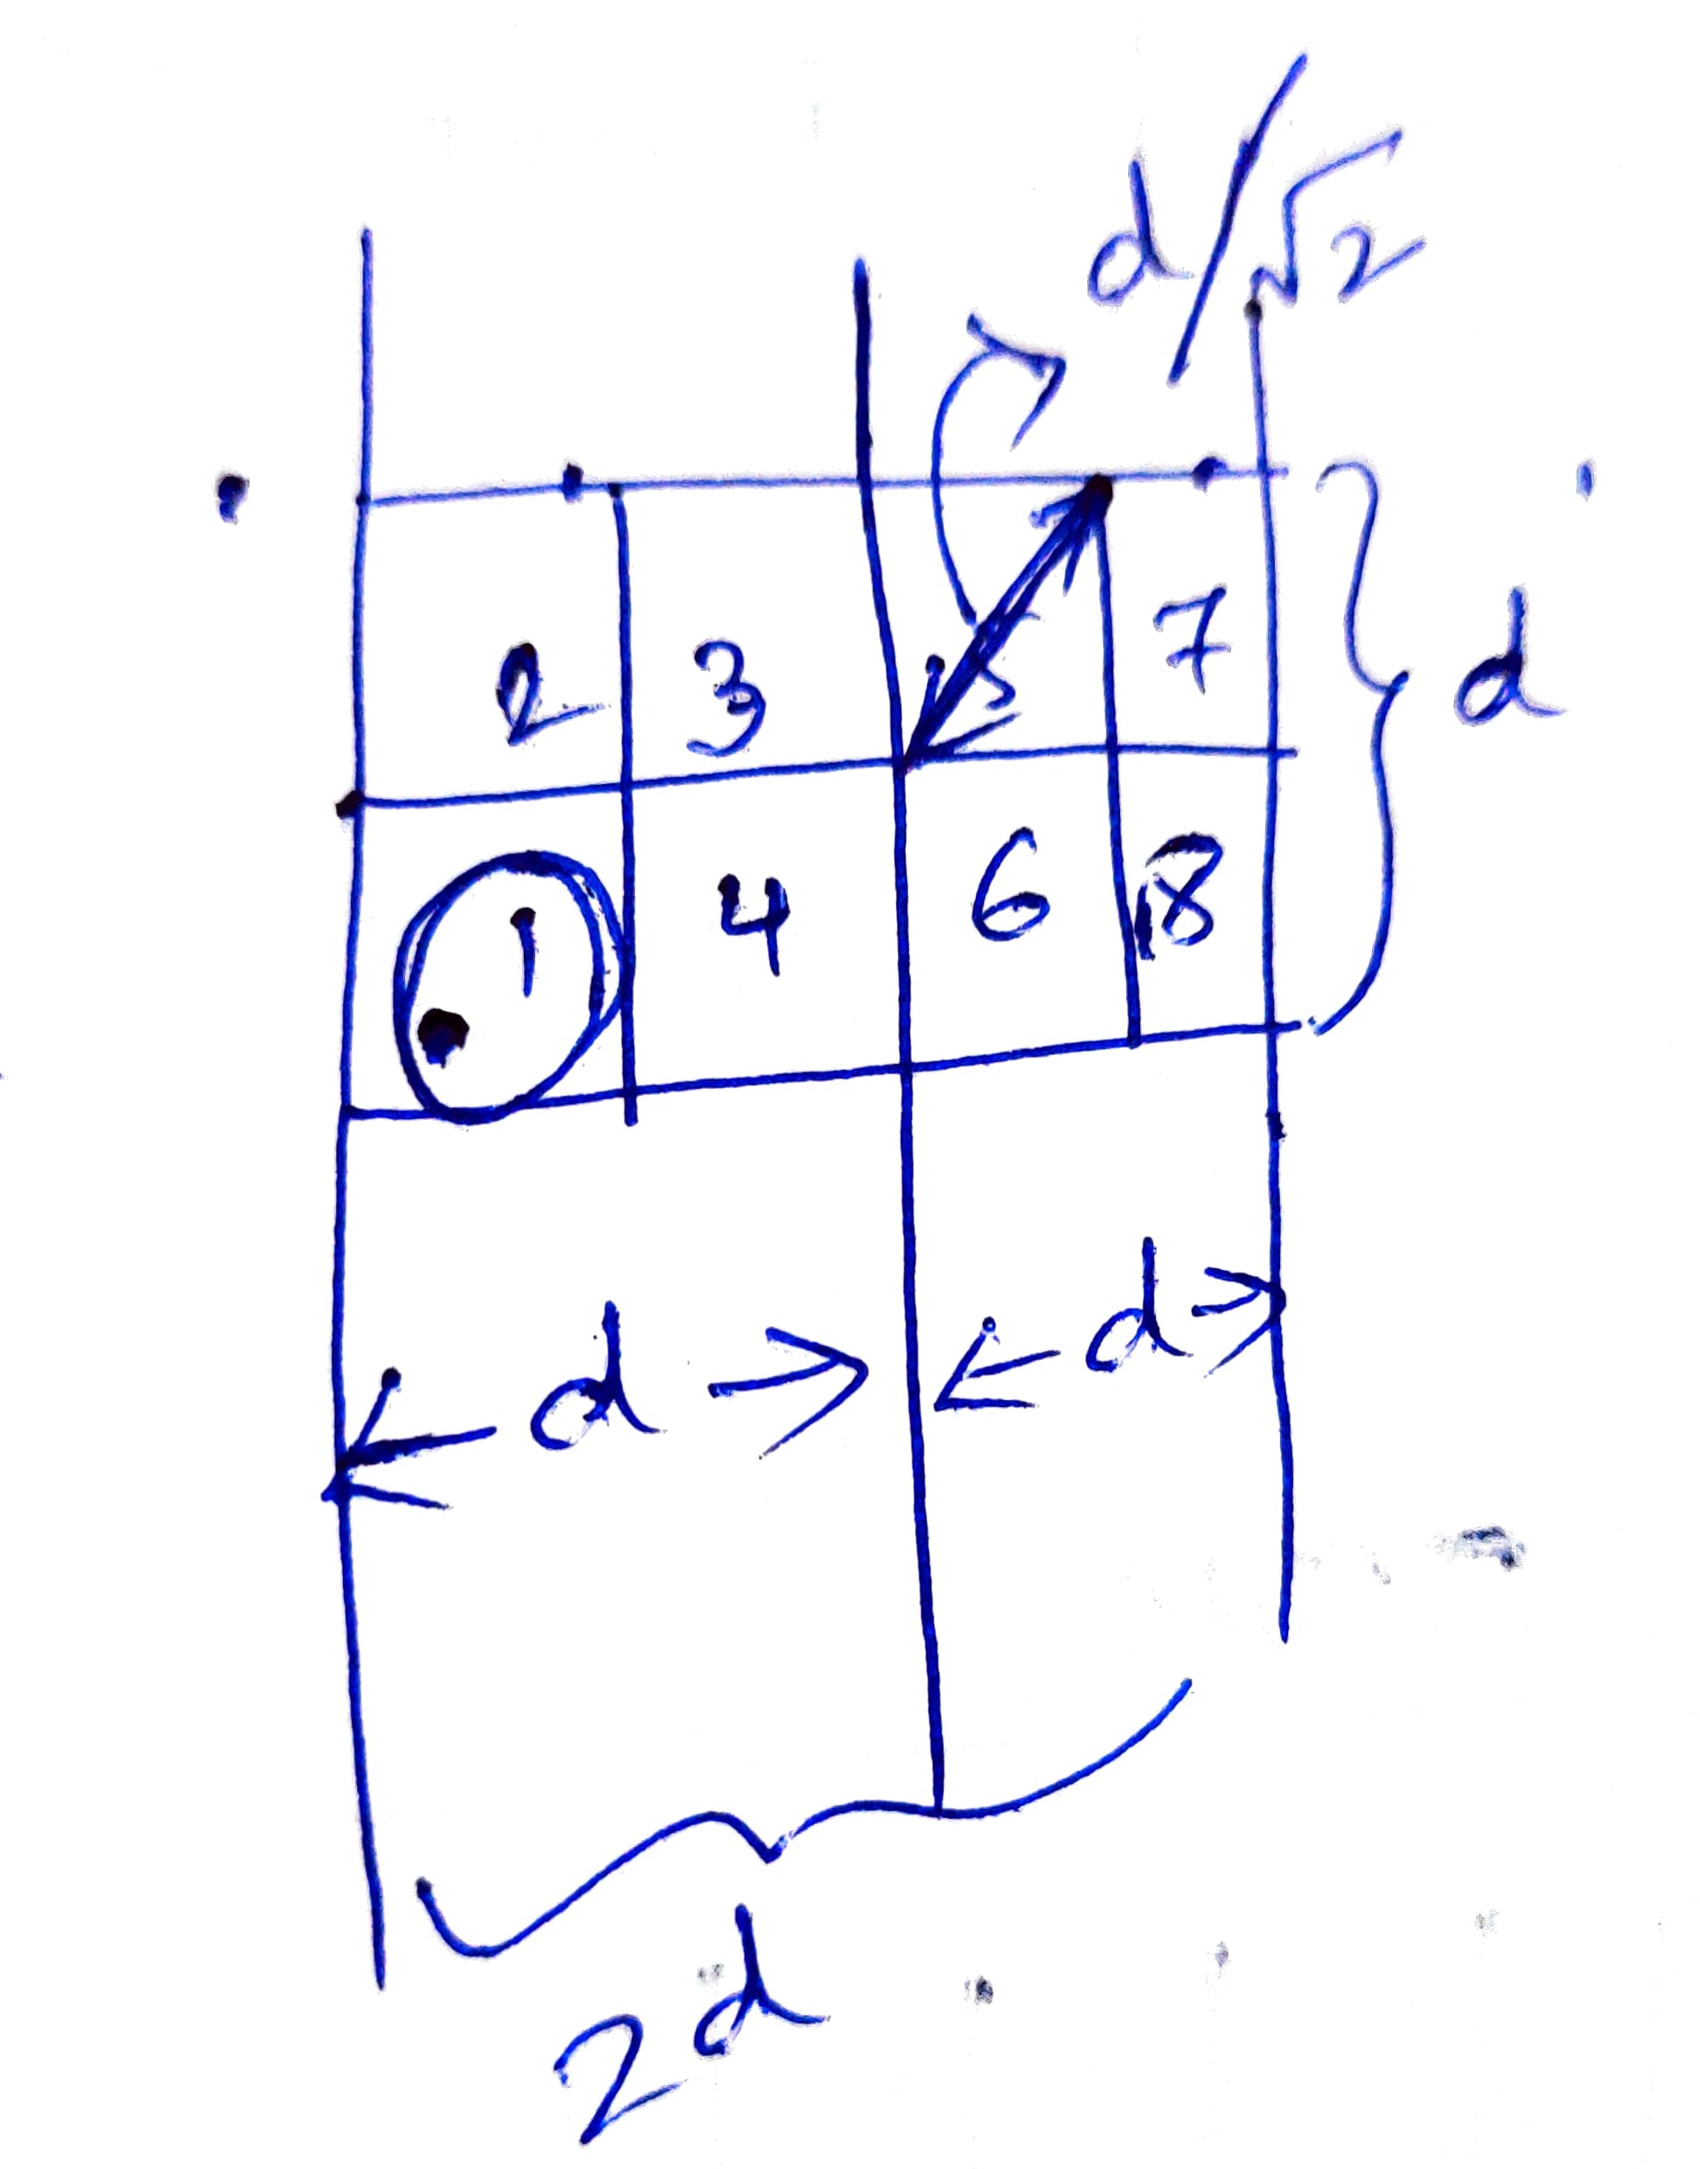 d/√2
2 3 5 7
d
1 4 6 8
d d
2d